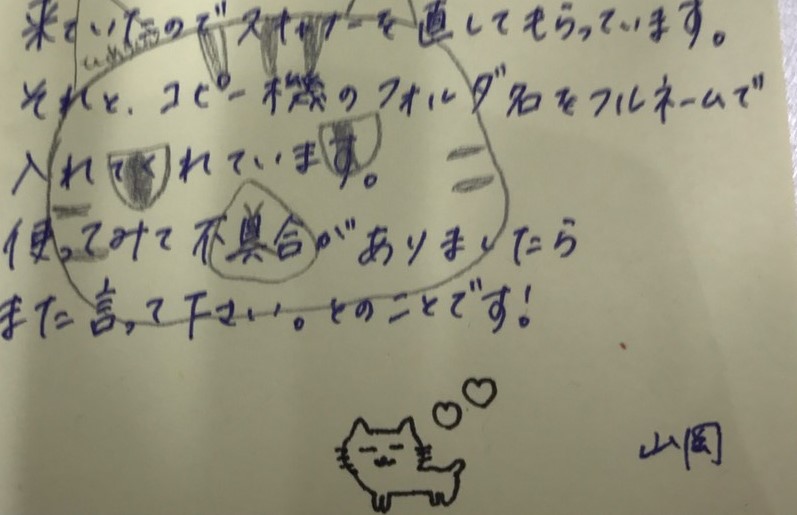 来ていたのでスキャナーを直してもらっています。
それと、コピー機のフォルダ名をフルネームで
入れてくれています。
使ってみて不具合がありましたら
また言って下さい。とのことです!
山岡